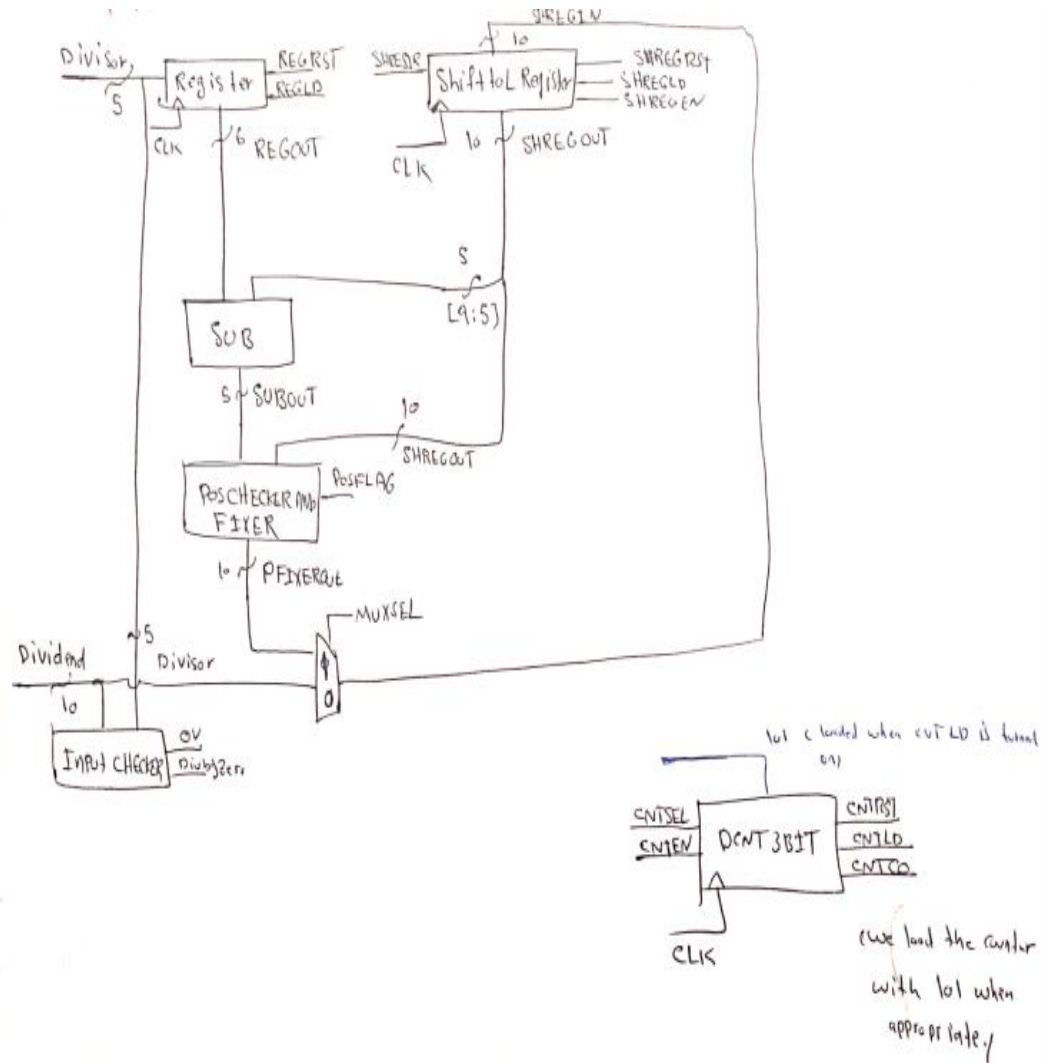 SHREGIN
10
Divisor
5
Register
REGRST
REGLD
CLK
6 REGOUT
Shift to L Register
SHREGRST
SHREGLD
SHREGEN
CLK
10 SHREGOUT
5
[9:5]
SUB
5 SUBOUT
10
SHREGOUT
POSCHECKER AND
FIXER
POSFLAG
10 PFIXEROut
MUXSEL
5
Dividend
10
Divisor
1
0
INPUT CHECKER
OV
DivbyZero
101 (loaded when CNTLD is turned
on)
CNTSEL
CNTEN
DCNT 3BIT
CNTRST
CNTLD
CNTCO
CLK
(we load the counter
with 101 when
appropriate)